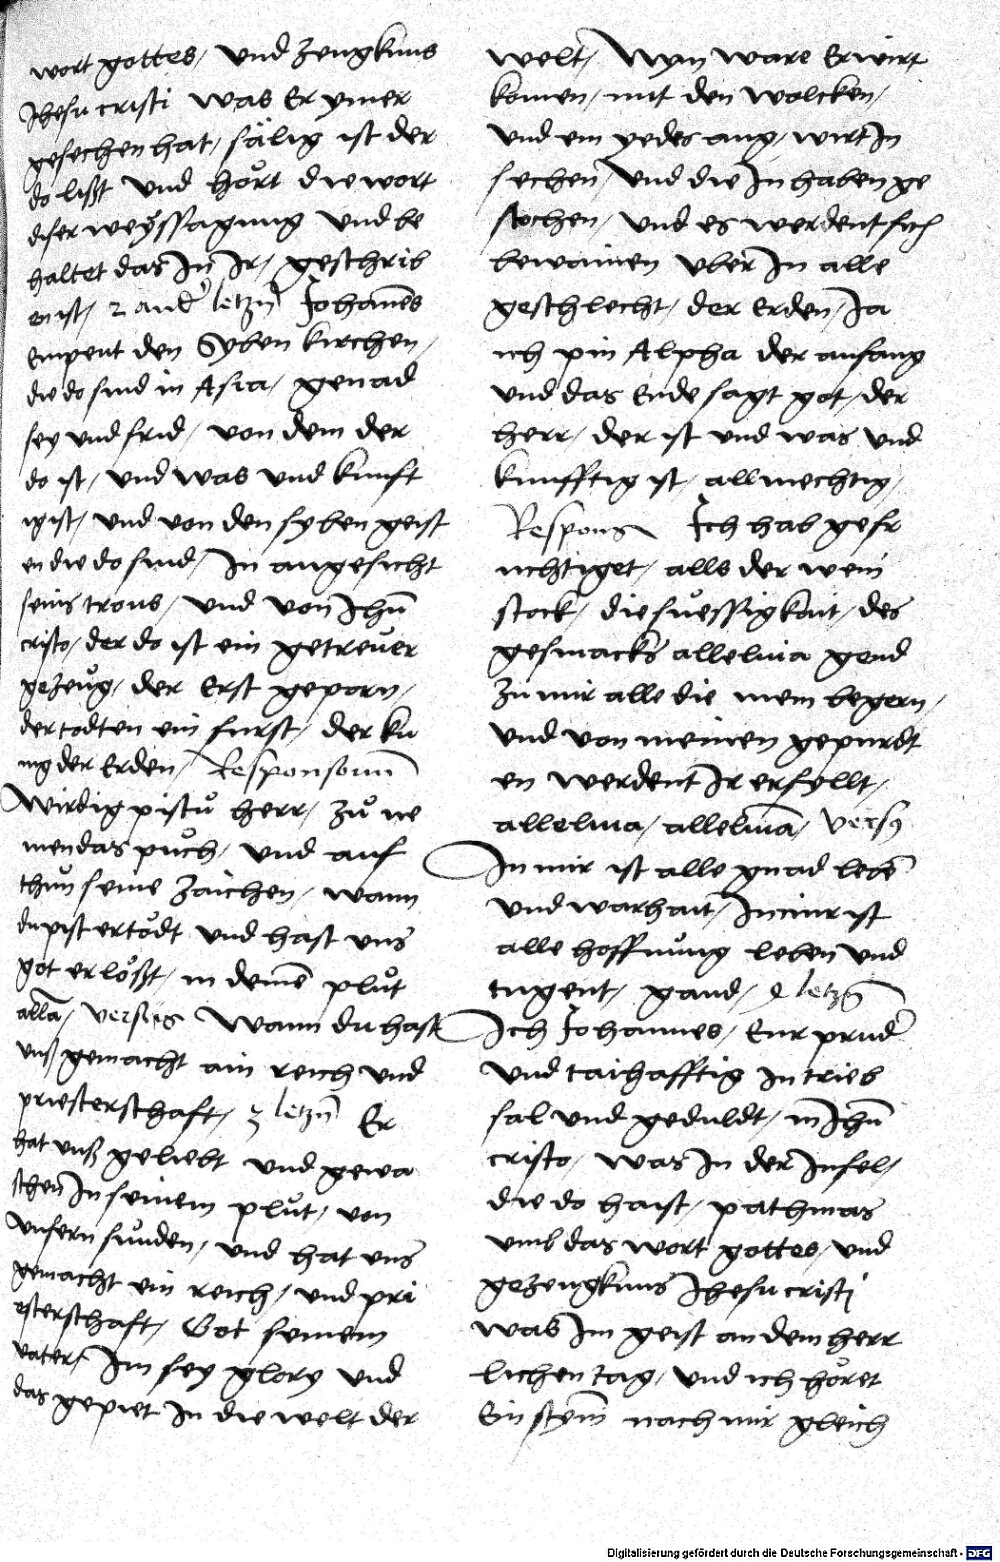 wort gottes / und zeugknus
Jhesu cristi was Er ymer
gesechen hat / sälig ist der
do lißt und hört die wort
diser weyssagung und be
haltet das Jn Jr / geschrib
en ist / 2 and' letzn Johanes
Empeut den Syben kirchen /
die do sind in Asia / genad
sey und frid / von dem der
do ist / und was und kunft
ig ist / und von den syben geist
en die do sind / Jn angesicht
seins trons / und von Jhu
cristo / der do ist ein getreuer
gezeug / der Erst geporn /
der todten ein furst / der ku
nig der Erden / Responsorium
Wirdig pistu herr / zu ne
men das puch / und auf
thun seine zaichen / wann
du pist ertödt und hast uns
got erlößt / in deinē plut
allā / Versus Wann du hast
unß gemacht ain reich und
priesterschaft / 3 letzn Er
hat unß geliebt und gewa
schen Jn seinem plut / von
unsern sunden / und hat uns
gemacht ein reich / und pri
esterschaft / Got seinem
vater / Jm sey glory und
das gepiet Jn die welt der
welt / Nym ware Er wirt
komen / mit den wolcken /
und ein yedes aug / wirt Jn
sechen / und die Jn haben ge
stochen / und es werdent sich
bewainen uber Jn alle
geschlecht / der Erden / Ja
ich pin Alpha der anfang
und das Ende sagt got / der
herr / der ist und was und
kunfftig ist / allmechtig /
Respons Ich hab gefr
uchtiget / alls der wein
stock / die suessigkait / des
gesmacks alleluia gend
zu mir alle die mein begern /
und von meinen gepurdt
en werdent Jr erfyllt /
alleluia / alleluia / Vers
Jn mir ist alle gnad lebē
und warhait / Jn mir ist
alle hoffnung leben und
tugent / gand / letzn
Ich Johannes / Eur prud'
und tailhafftig Jn trieb
sal und geduldt / in Jhu
cristo / was Jn der Jnsel /
die do haist / pathmas
umb das wort gottes / und
gezeugknus Jhesu cristi
was Jm geist an dem herr
lichen tag / und ich höret
Ein stym nach mir gleich
Digitalisierung gefördert durch die Deutsche Forschungsgemeinschaft - DFG